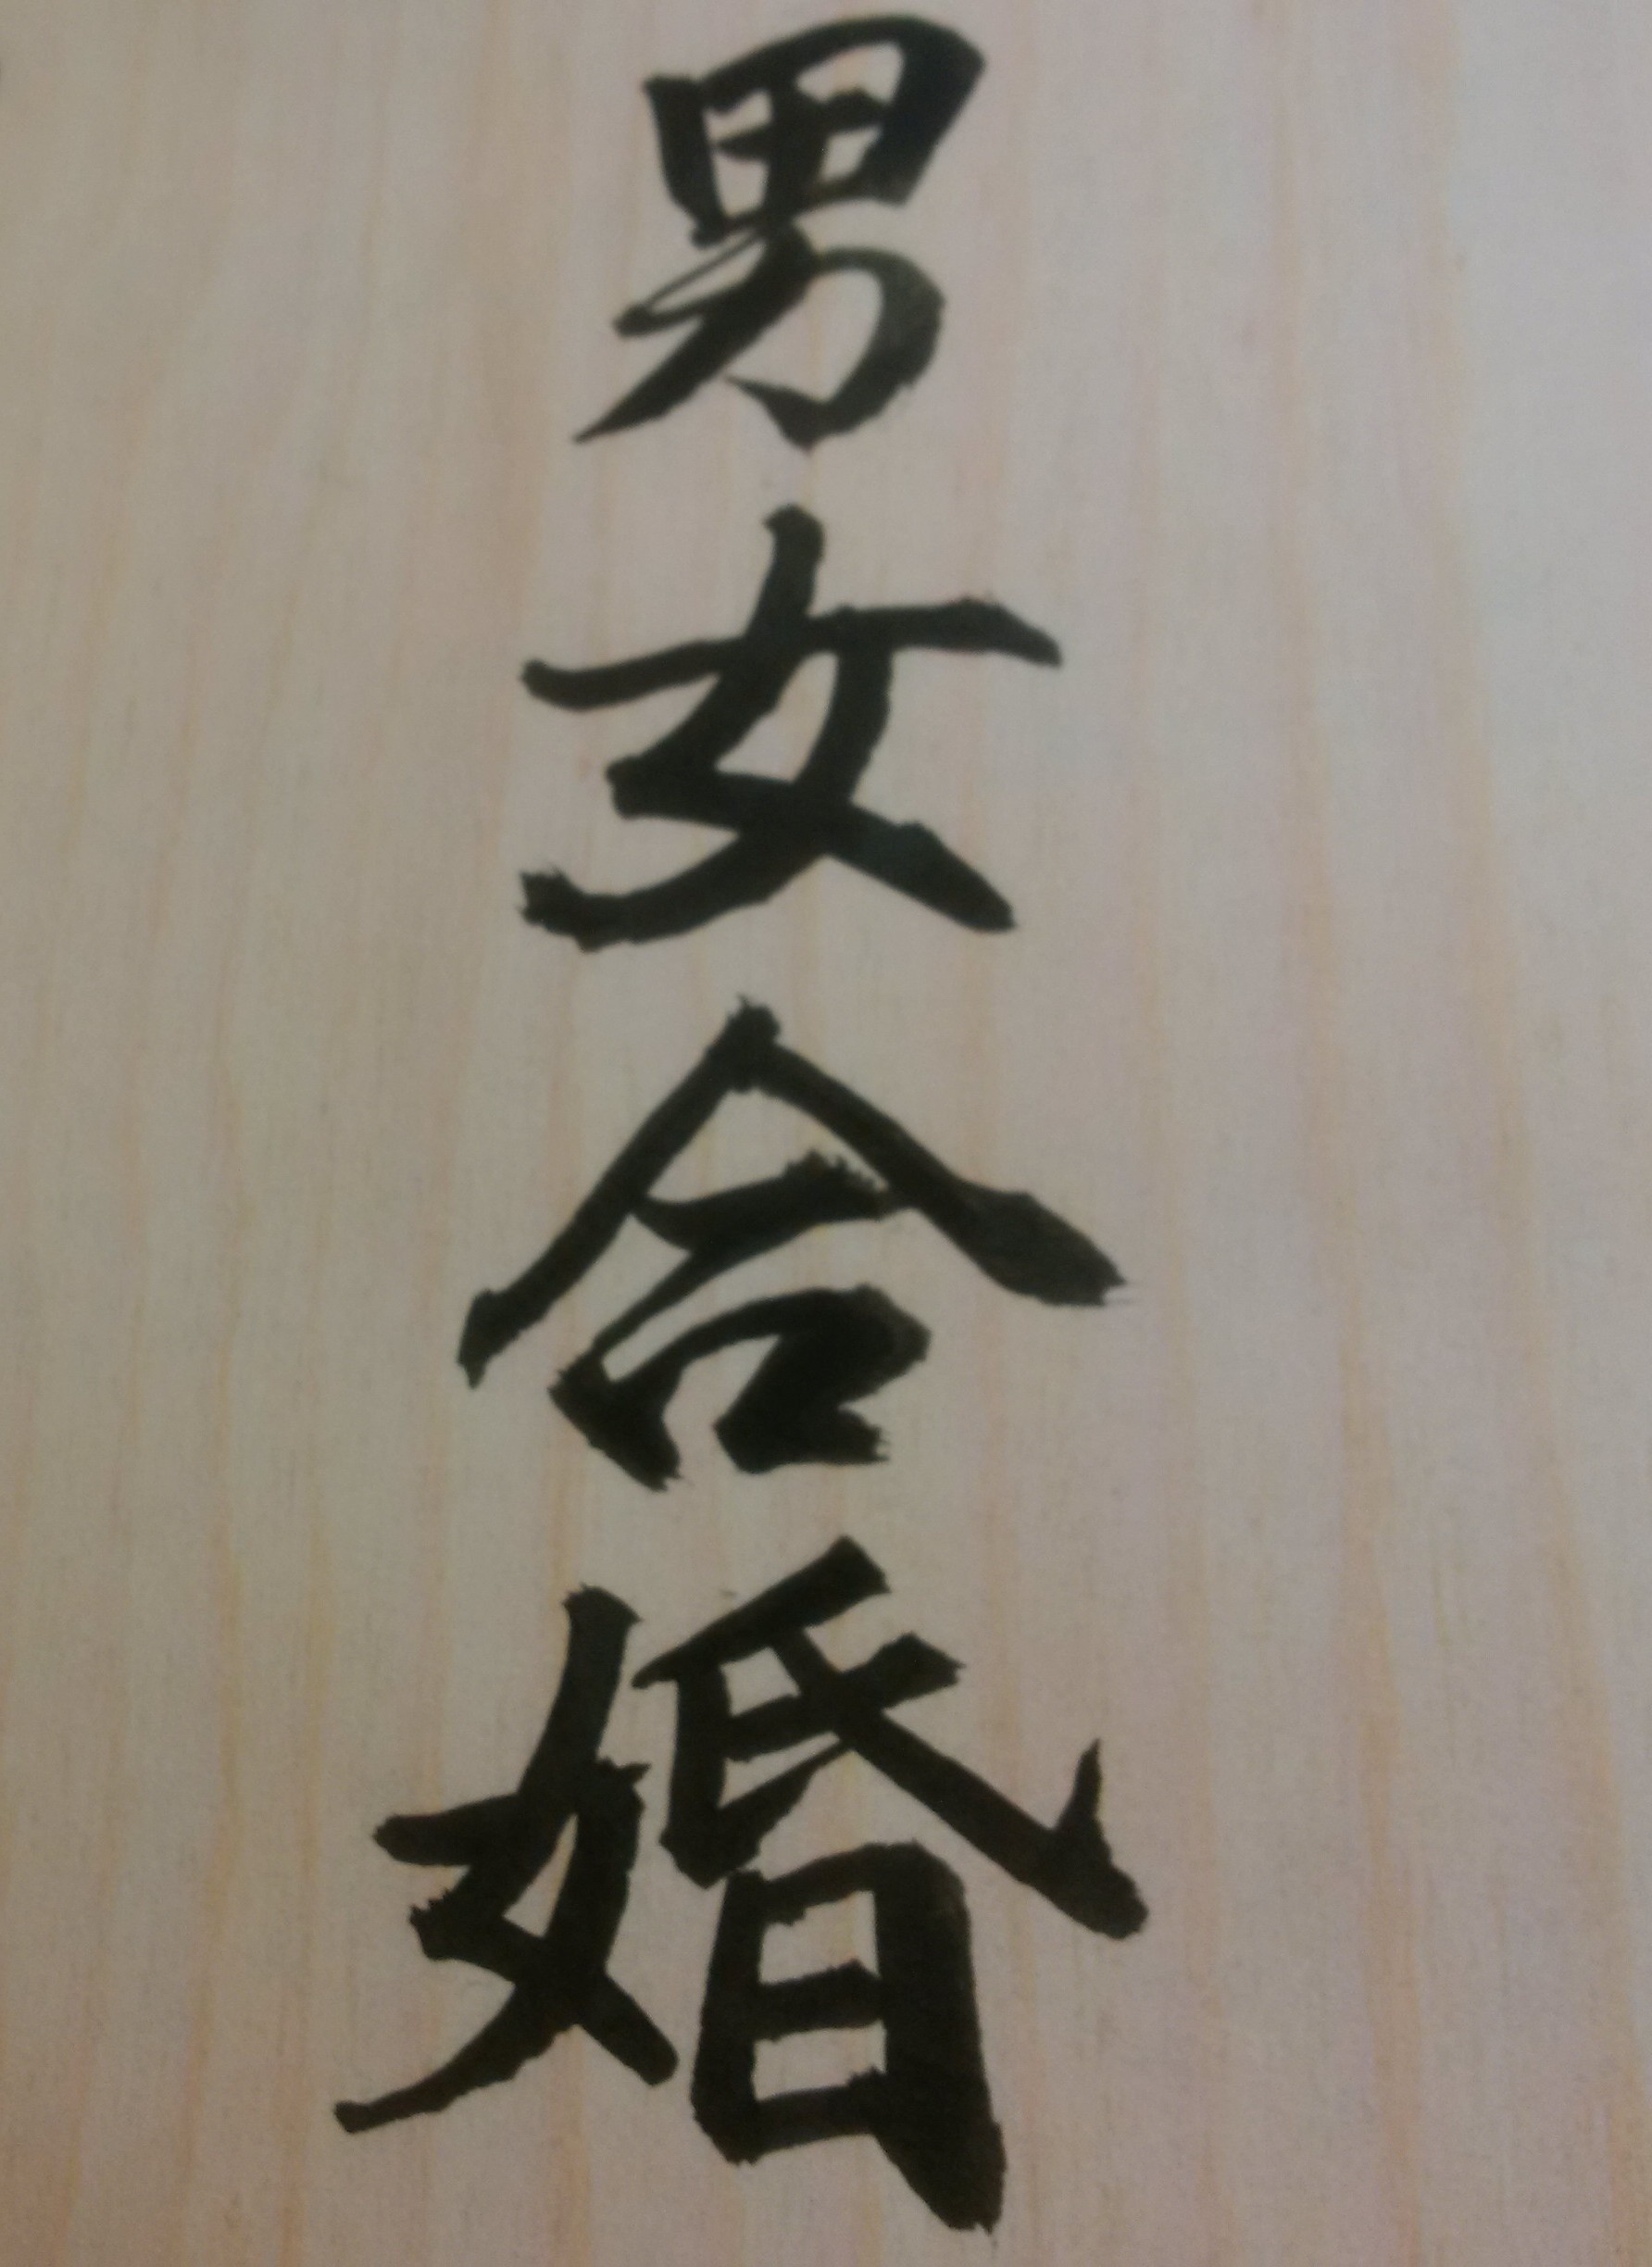 男女合婚